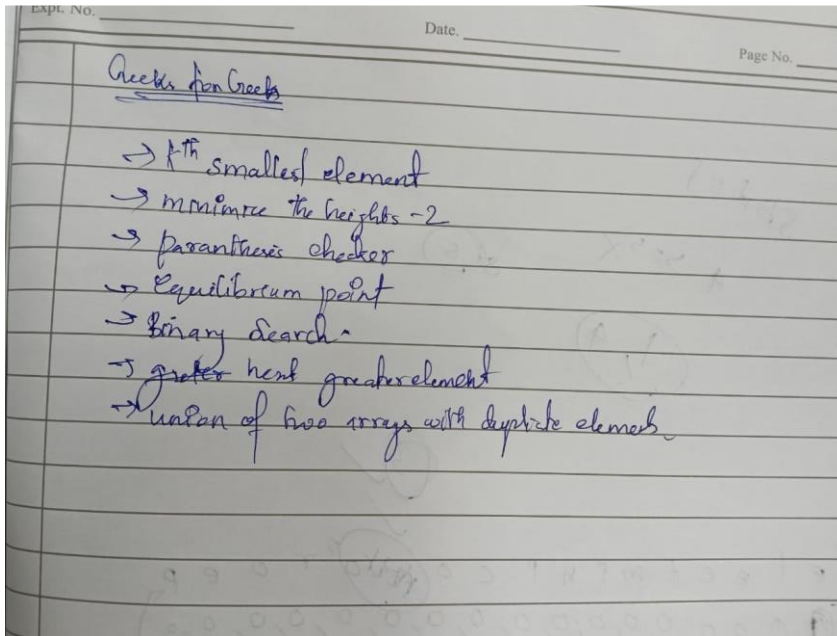 Expt. No.
Date.
Page No.
Geeks for Geeks
→ kth smallest element
→ minimize the heights -2
→ paranthesis checker
→ Equilibrium point
→ Binary Search.
→ next greater element
→ union of two arrays with duplicate elements